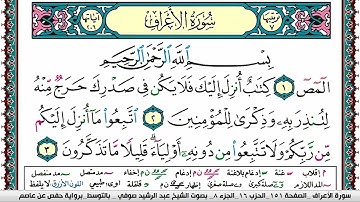 سُورَةُ الأَعْرَافِ
بِسْمِ اللَّهِ الرَّحْمَٰنِ الرَّحِيمِ
الٓمٓصٓ ۝١ كِتَٰبٌ أُنزِلَ إِلَيْكَ فَلَا يَكُن فِى صَدْرِكَ حَرَجٌ مِّنْهُ
لِتُنذِرَ بِهِۦ وَذِكْرَىٰ لِلْمُؤْمِنِينَ ۝٢ ٱتَّبِعُوا۟ مَآ أُنزِلَ إِلَيْكُم
مِّن رَّبِّكُمْ وَلَا تَتَّبِعُوا۟ مِن دُونِهِۦٓ أَوْلِيَآءَ ۗ قَلِيلًا مَّا تَذَكَّرُونَ ۝٣
سورة الأعراف _ الصفحة ١٥١ _ الحزب ١٦ _ الجزء ٨ _ بصوت الشيخ عبد الرشيد صوفي _ بالتوسط _ برواية حفص عن عاصم